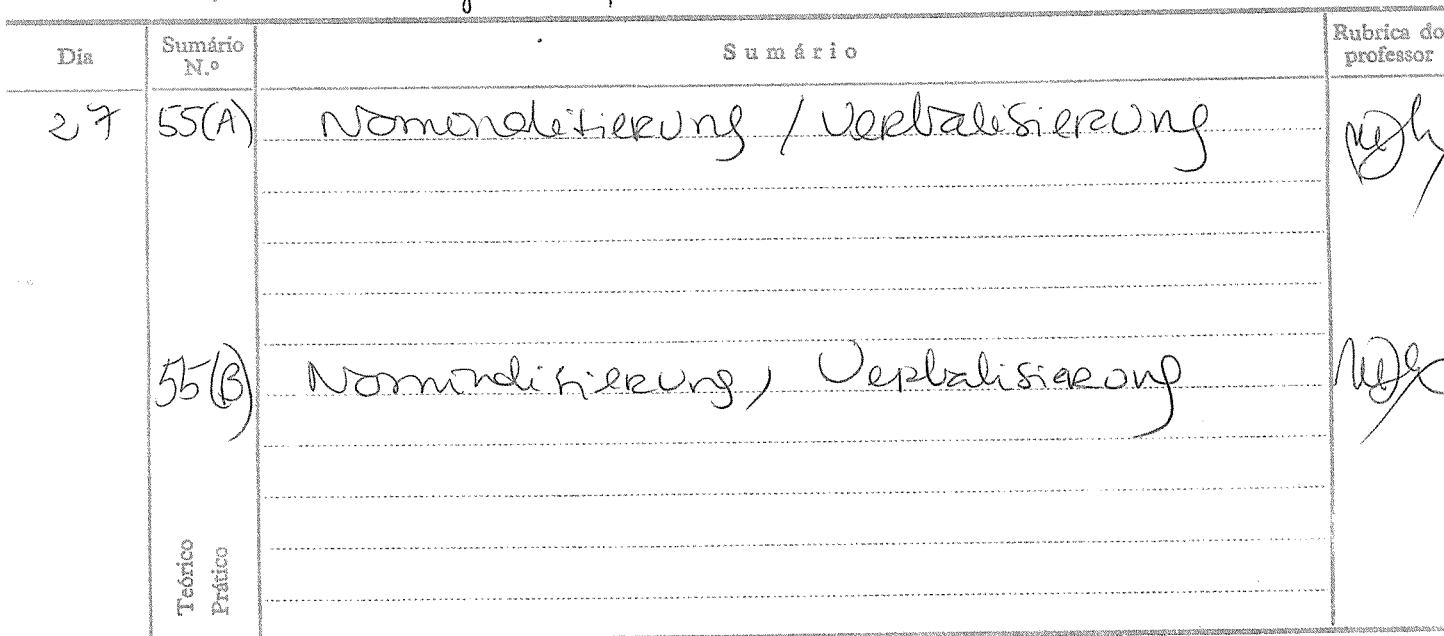 Dia Sumário N.º Sumário Rubrica do professor
27 55(A) Nominalisierung / Verbalisierung
55(B) Nominalisierung, Verbalisierung
Teórico
Prático